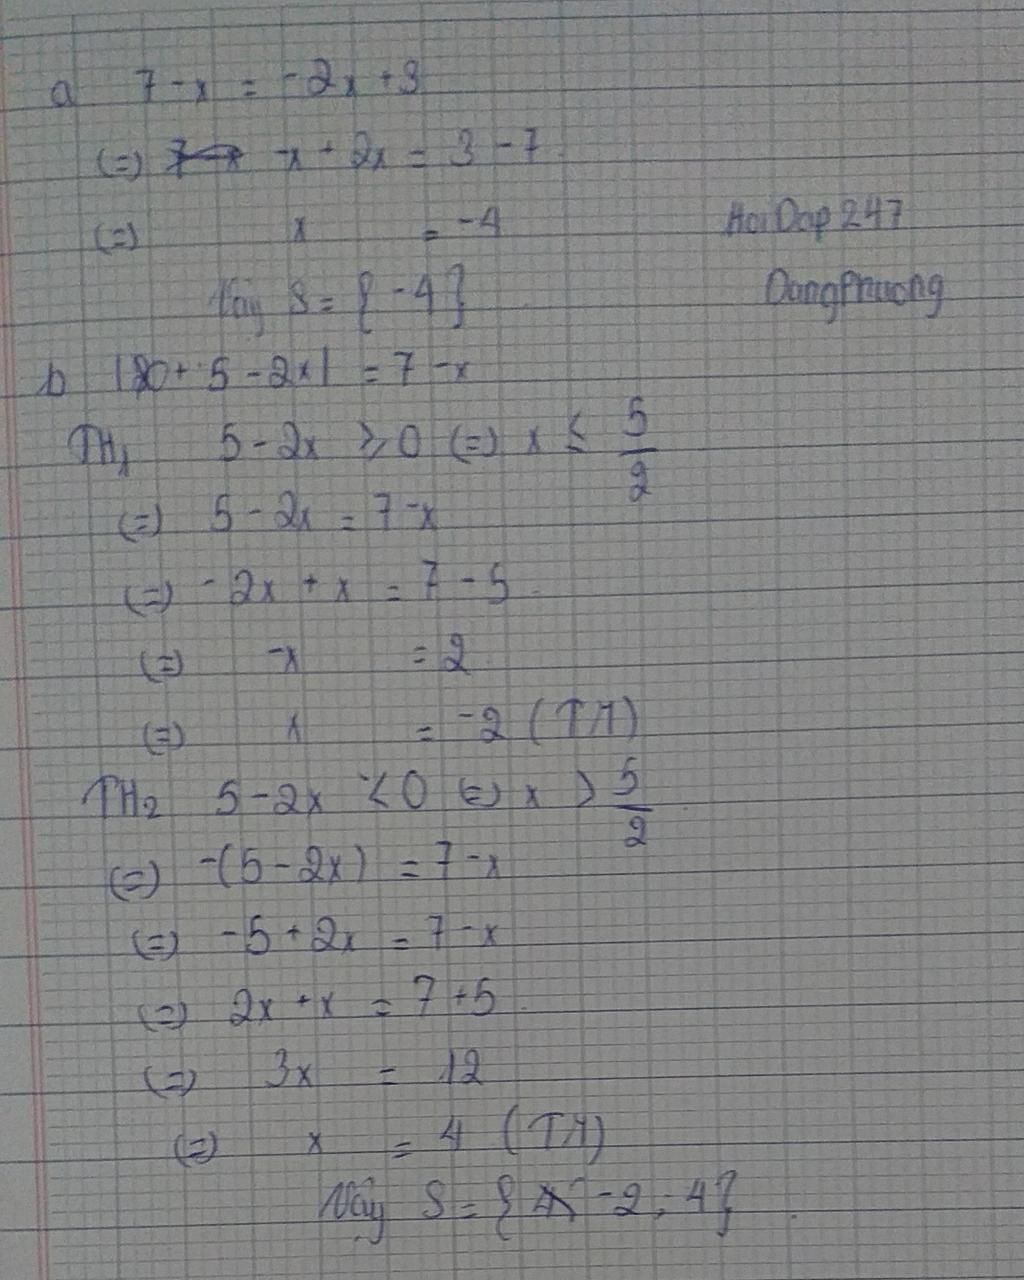 a 7 - x = -2x + 3
(=) -x + 2x = 3 - 7
(=) x = -4
Hoi Dap 247
Vậy S = { -4 }
DongPhuong
b |20 + 5 - 2x| = 7 - x
TH1 5 - 2x ≥ 0 (=) x ≤ 5/2
(=) 5 - 2x = 7 - x
(=) -2x + x = 7 - 5
(=) -x = 2
(=) x = -2 (TM)
TH2 5 - 2x < 0 (=) x > 5/2
(=) -(5 - 2x) = 7 - x
(=) -5 + 2x = 7 - x
(=) 2x + x = 7 + 5
(=) 3x = 12
(=) x = 4 (TM)
Vậy S = { -2 ; 4 }